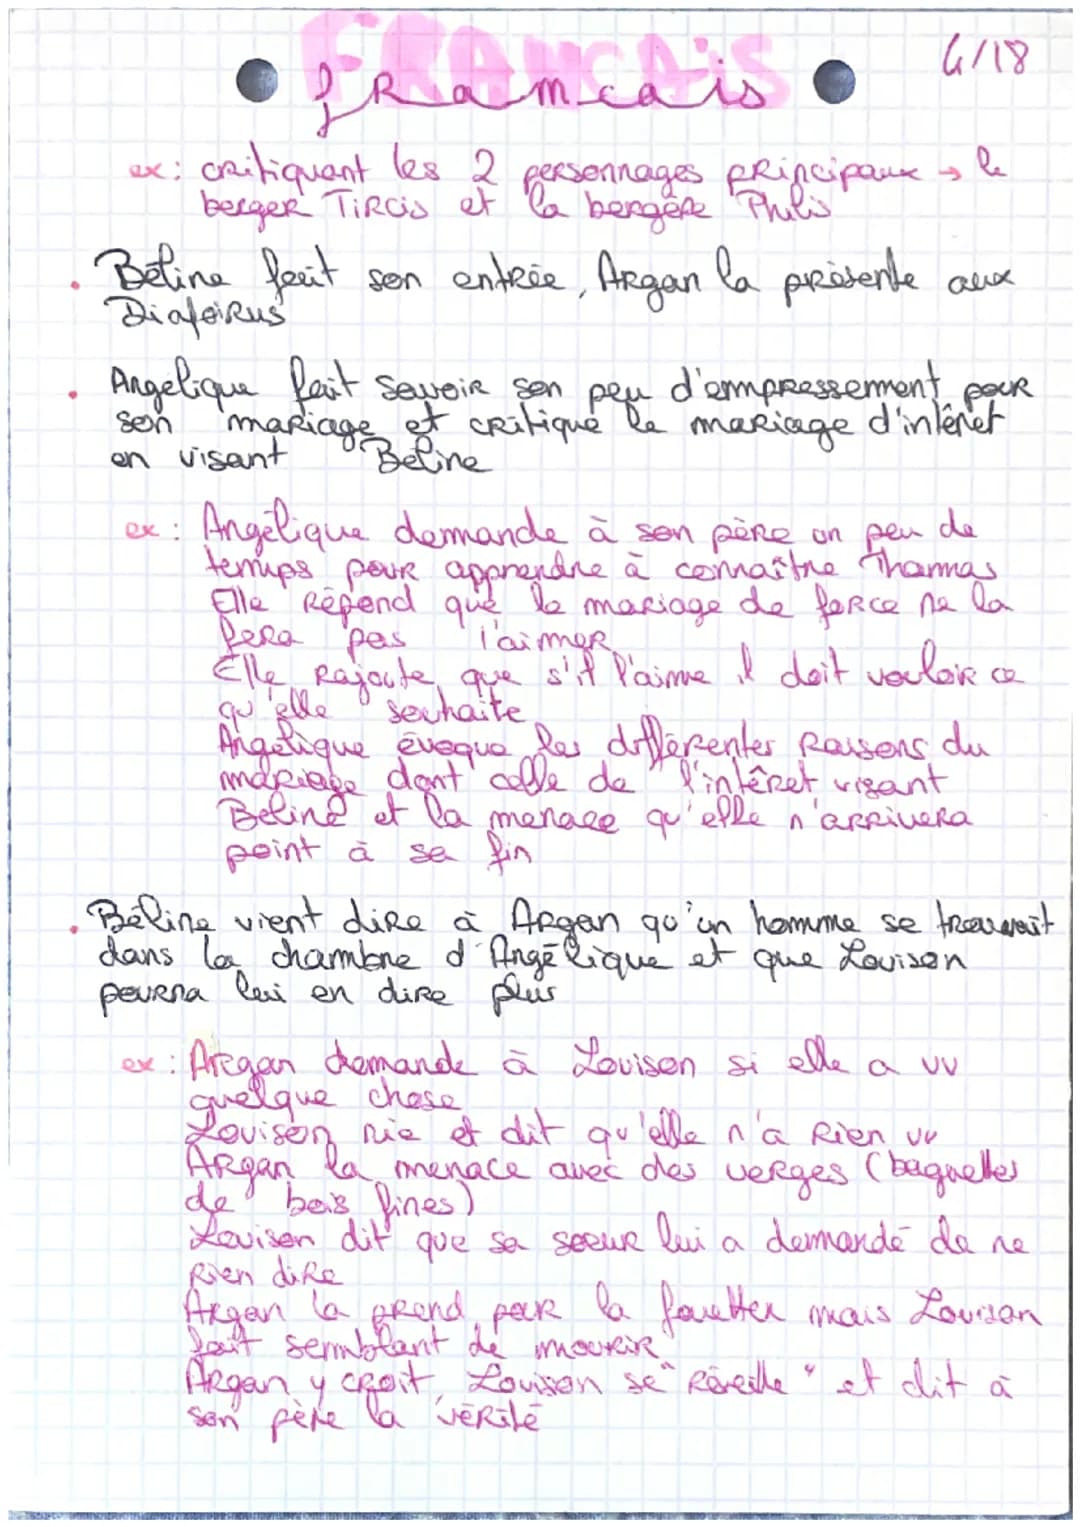 FRANCAIS
français
4/18
ex : critiquant les 2 personnages principaux → le
berger Tircis et la bergère Philis
. Béline fait son entrée, Argan la présente aux
Diafoirus
. Angélique fait savoir son peu d'empressement pour
son mariage et critique le mariage d'intêret
en visant Béline
ex : Angélique demande à son père un peu de
temps pour apprendre à connaître Thomas
Elle répond que le mariage de force ne la
fera pas l'aimer
Elle rajoute que s'il l'aime il doit vouloir ce
qu'elle souhaite
Angélique évoque les différentes raisons du
mariage dont celle de l'intêret visant
Béline et la menace qu'elle n'arrivera
point à sa fin
. Béline vient dire à Argan qu'un homme se trouvait
dans la chambre d'Angélique et que Louison
pourra lui en dire plus
ex : Argan demande à Louison si elle a vu
quelque chose
Louison nie et dit qu'elle n'a rien vu
Argan la menace avec des verges (baguettes
de bois fines)
Louison dit que sa soeur lui a demandé de ne
rien dire
Argan la prend pour la fouetter mais Louison
fait semblant de mourir
Argan y croit, Louison se "réveille" et dit à
son père la vérité